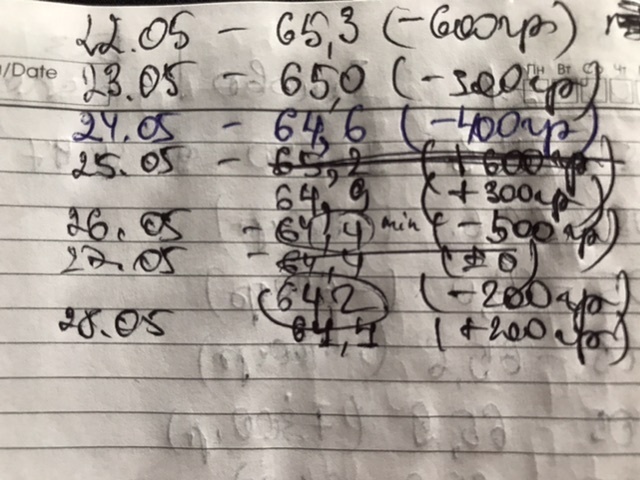 22.05 - 65,3 (-600гр)
/Date Пн Вт Ср Чт
23.05 - 65,0 (-300гр)
24.05 - 64,6 (-400гр)
25.05 - 65,2 (+600гр)
64,9 (+300гр)
26.05 - 64,4 min (-500гр)
27.05 - 64,4 (±0)
64,2 (-200гр)
28.05 64,4 (+200гр)